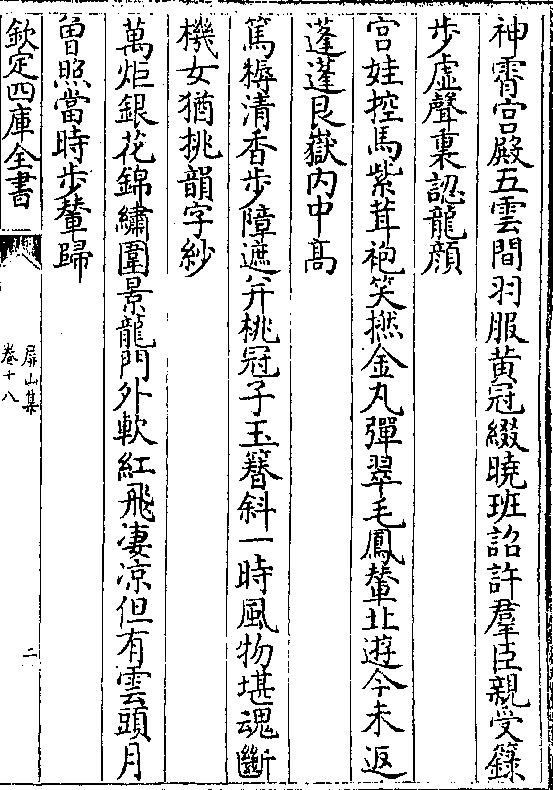 神霄宫殿五雲間羽服黄冠綴曉班詔許羣臣親受籙
步虛聲裏認龍顔
宫娃控馬紫茸袍笑撚金丸彈翠毛鳳輦北遊今未返
蓬蓬艮嶽内中髙
篤耨清香步障遮并桃冠子玉簪斜一時風物堪魂斷
機女猶挑韻字紗
萬炬銀花錦繡圍景龍門外軟紅飛凄凉但有雲頭月
曽照當時步輦歸
欽定四庫全書
屏山集
卷十八
二